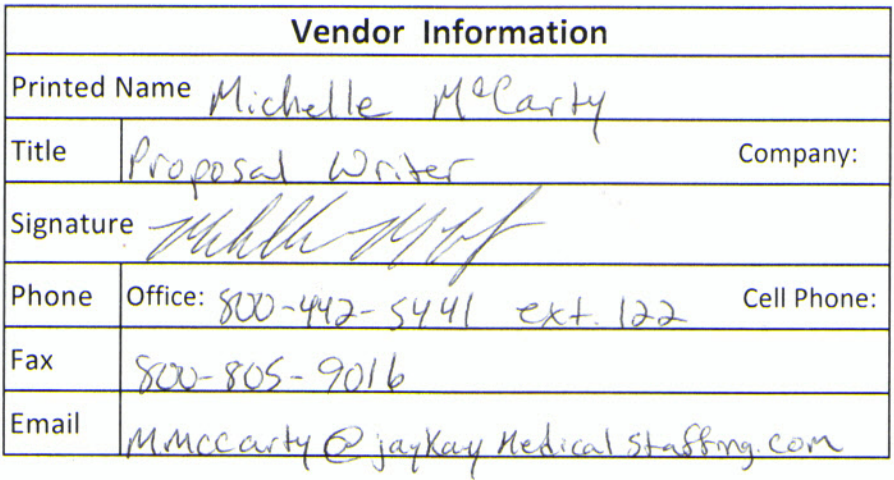 Vendor Information
Printed Name Michelle McCarty
Title Proposal Writer Company:
Signature
Phone Office: 800-442-5441 ext. 122 Cell Phone:
Fax 800-805-9016
Email M.Mccarty@jayKayMedicalStaffing.com